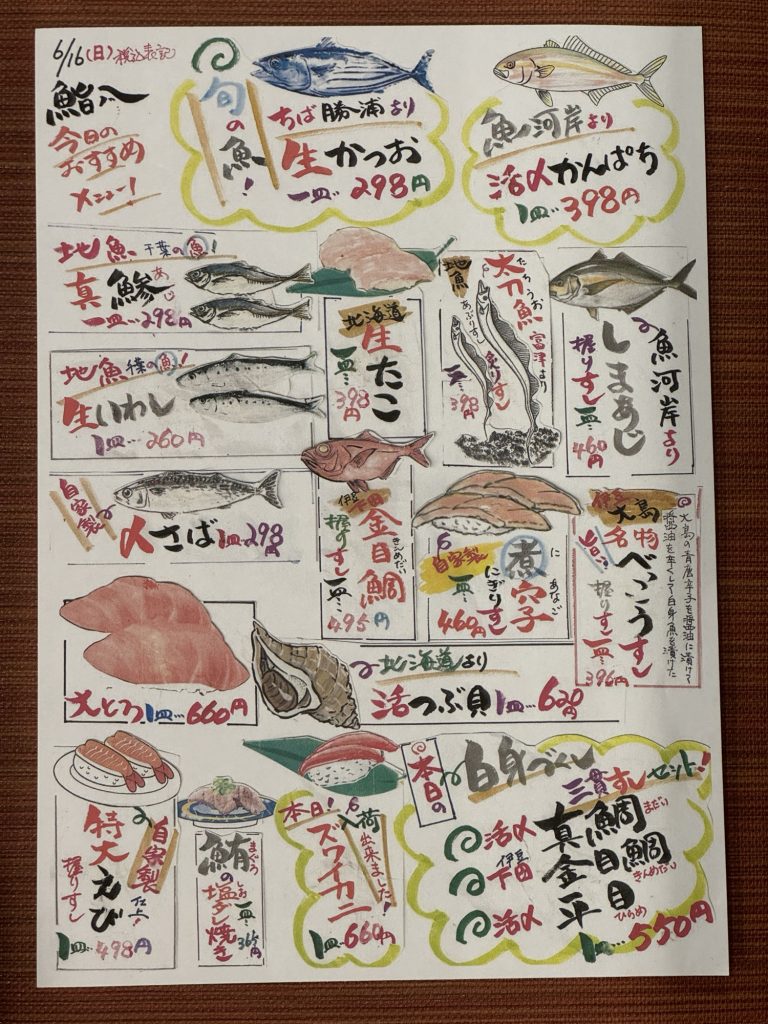 6/16(日)税込表記
鮨八
今日の
おすすめ
メニュー!
旬の魚!
ちば勝浦より
生かつお
一皿…298円
魚河岸より
活〆かんぱち
1皿…398円
地魚 千葉の魚!
真鯵
あじ
一皿…298円
北海道
生たこ
一皿…398円
地魚
太刀魚
たちうお
富津より
あぶりすし
炙りすし
一皿…398円
魚河岸より
しまあじ
握りすし一皿…460円
地魚 千葉の魚!
生いわし
1皿…260円
自家製
〆さば 1皿…298円
伊豆
下田
金目鯛
きんめだい
握りすし一皿…495円
自家製
煮穴子
に あなご
にぎりすし
一皿…460円
伊豆
大島
名物
べっこうすし
旨い!
握りすし一皿…396円
大島の青唐辛子を醤油に漬けて
醤油を辛くして白身魚を漬けた
大とろ 1皿…660円
北海道より
活つぶ貝 1皿…620円
特大えび
自家製
仕上!
握りすし
1皿…498円
鮪の塩タレ焼き
まぐろ
しお
一皿…365円
本日!
入荷
出来ました!
ズワイカニ
1皿…660円
本日の
白身づくし
三貫すしセット!
活〆 真鯛 まだい
伊豆
下田 金目鯛 きんめだい
活〆 平目 ひらめ
1皿…550円